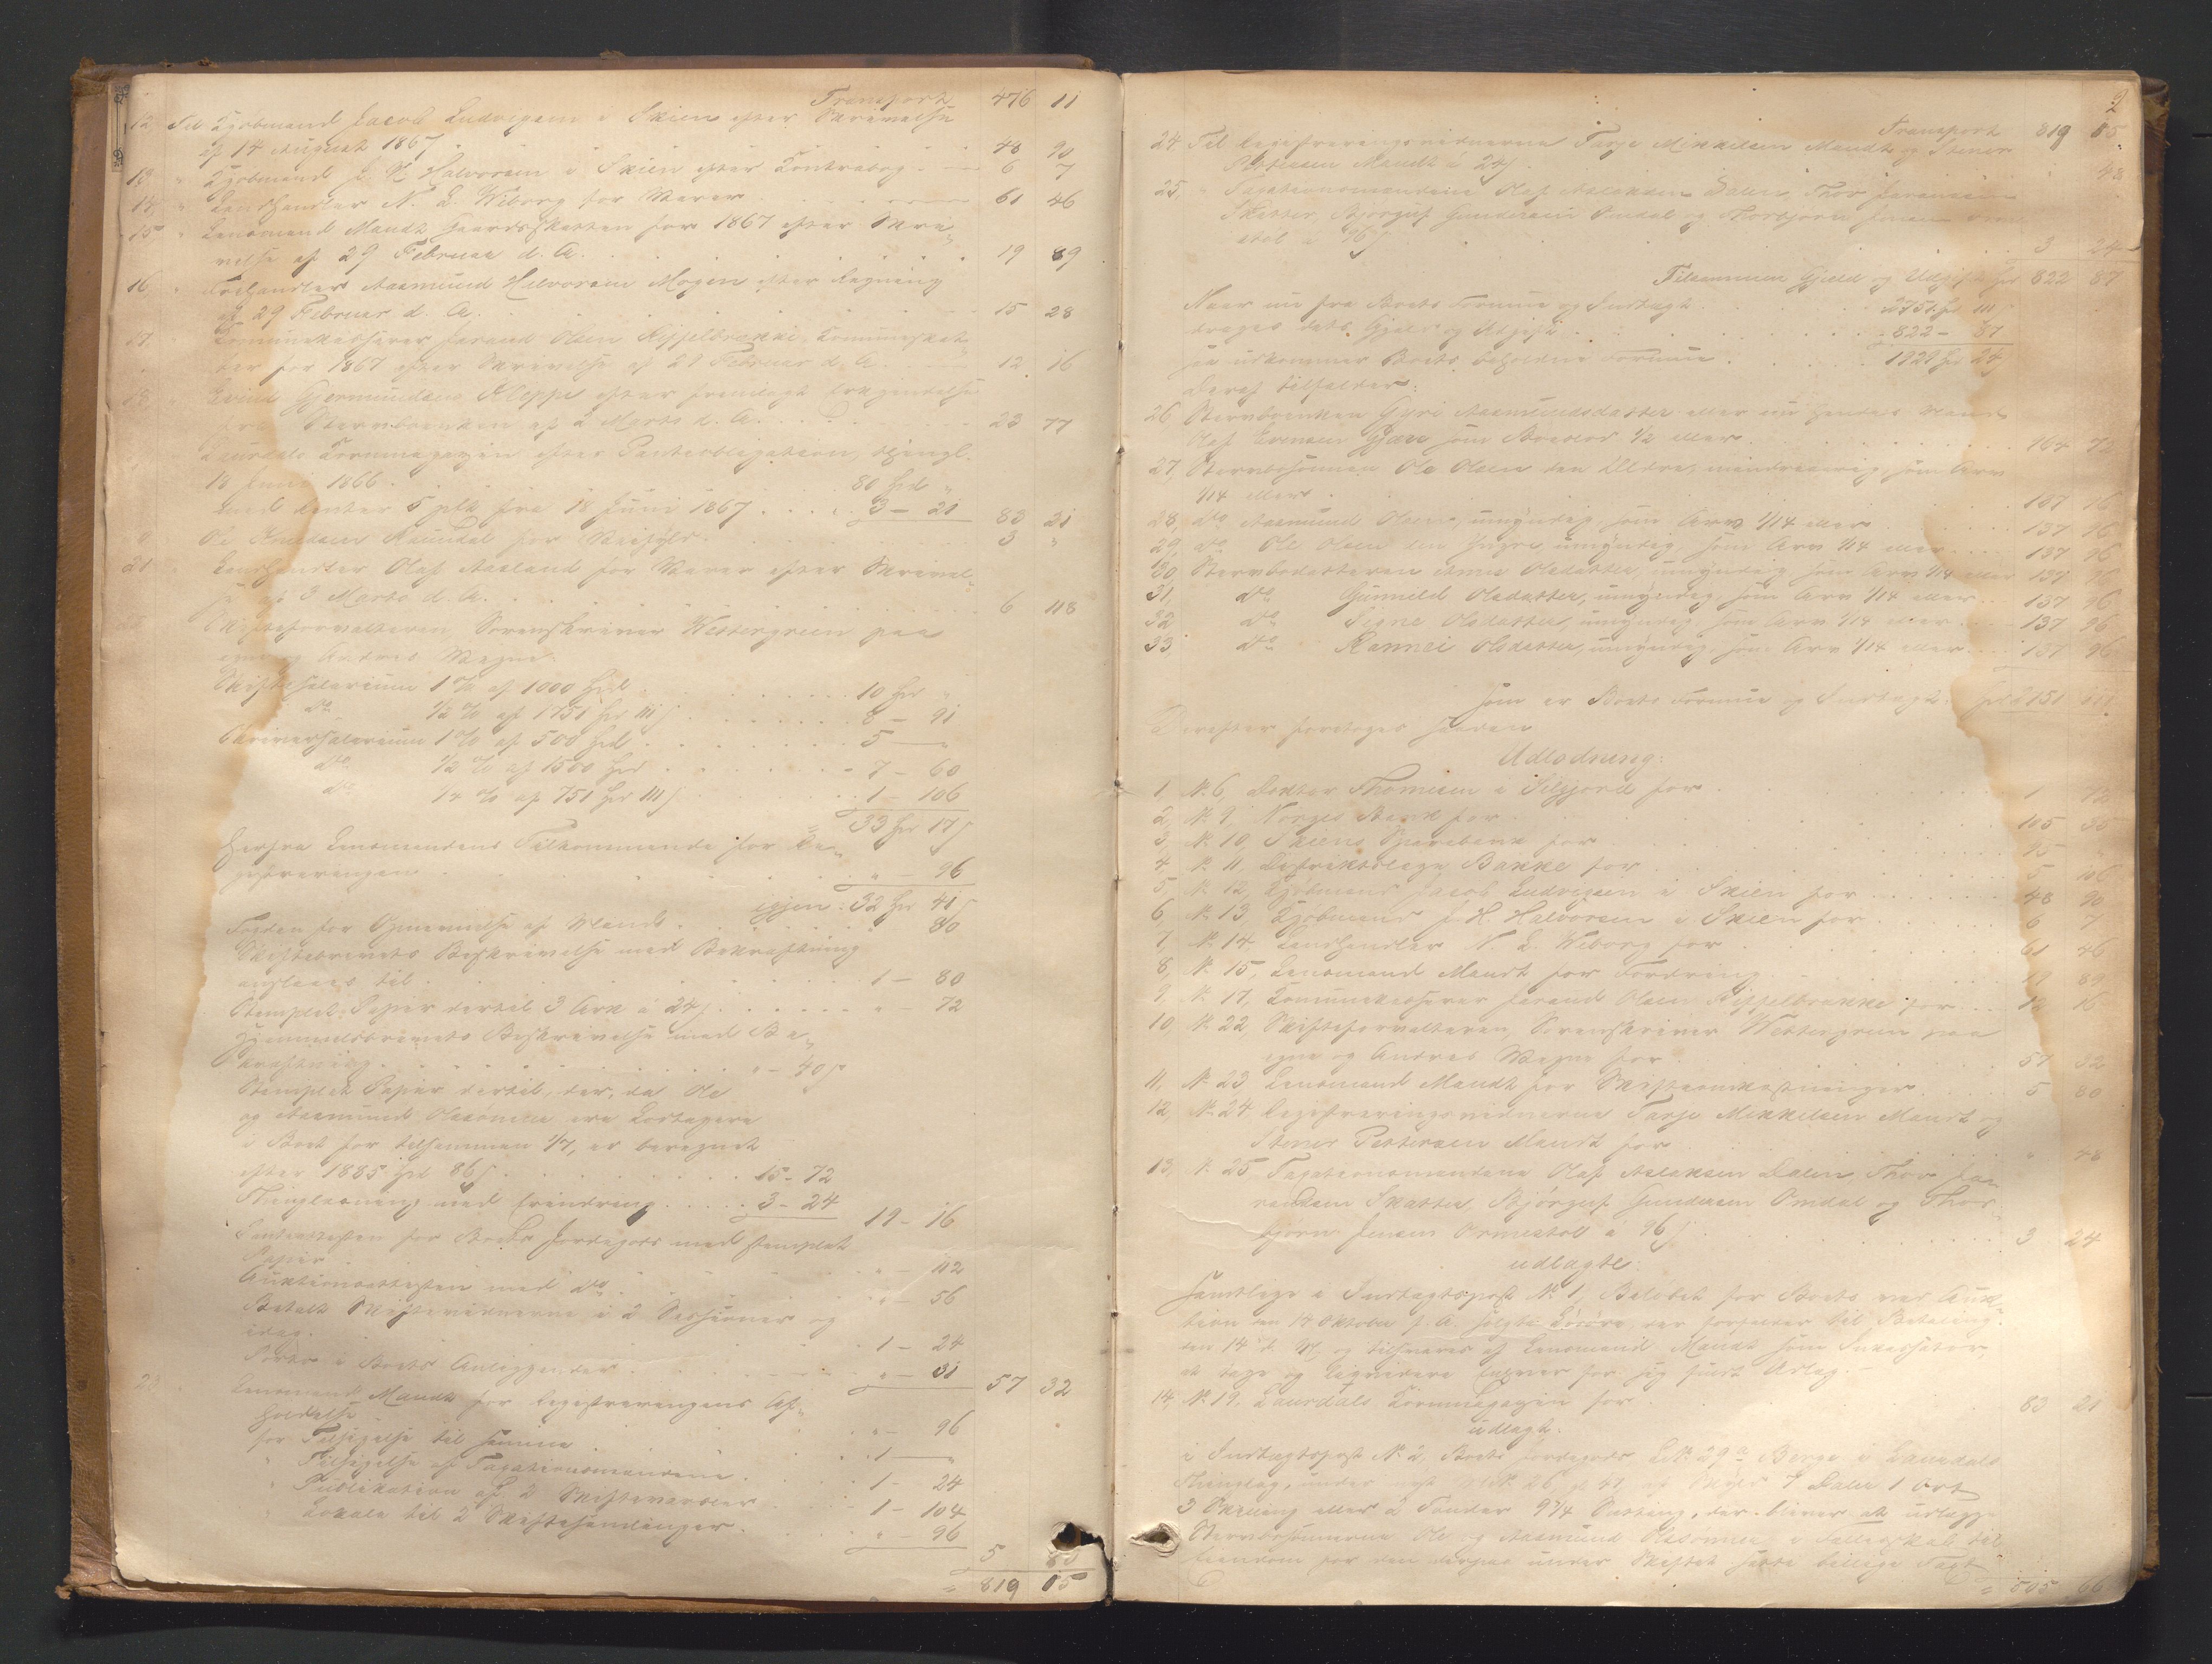 Transport 476 11
12, Til Kjøbmand Jacob Ludvigsen i Skien efter Skrivelse
af 14 August 1867 . . . 48 90
13, " Kjøbmand J. H. Halvorsen i Skien efter Contrabog . . . 6 7
14, " Landhandler N. L. Wiborg for Varer . . . 61 46
15, " Lensmand Mandt Gaardsskatten for 1867 efter Skri-
velse af 29 Februar d. A. . . . 19 89
16, " Landhandler Aasmund Halvorsen Mogen efter Regning
af 29 Februar d. A. . . . 15 28
17, " Communekasserer Jarand Olsen Kipfelbrække Communeskat-
ter for 1867 efter Skrivelse af 29 Februar d. A. . . . 12 16
18, " Eivind Gjermundsens Kleppe efter fremlagt Erkjendelse
fra Stervboenken af 2 Marts d. A. . . . 23 77
Laurdals Kornmagazin efter Panteobligation, thingl.
18 Juni 1866 . . . 80 Spd "
med Renter 5 pCt fra 18 Juni 1867 . . . 3 - 21 83 21
Ole Knudsen Raundal for . . . 3 "
21 " Landhandler Olaf Aasland for Varer efter Skrivel-
se af 3 Marts d. A. . . . 6 118
Skifteforvalteren, Sorenskriver Westergreen paa
egne og Andres Vegne:
Skiftesalarium 1 % af 1000 Spd . . . 10 Spd "
do ½ % af 1751 Spd 111 s . . . 8 - 91
Skriversalarium 1 % af 500 Spd . . . 5 - "
do ½ % af 1500 Spd . . . 7 - 60
do ¼ % af 751 Spd 111 s . . . 1 - 106
33 Spd 17 s
Herfra Lensmandens Tilkommende for Re-
gistreringen . . . " - 96
igjen: 32 Spd 41 s
Fogden for Opnævnelse af Mænd . . . 80
Skiftebrevets Beskrivelse med Bekræftning
anslaaes til . . . 1 - 80
Stemplet Papir dertil 3 Ark à 24 s . . . " - 72
Hjemmelsbrevets Beskrivelse med Be-
kræftning . . . " - 40 s
Stemplet Papir dertil, der, da Ole
og Aasmund Olssønner ere Lodtagere
i Boet for tilsammen 1/7, er beregnet
efter 1885 Spd 86 s . . . 15 - 72
Thinglæsning med Erindring . . . 3 - 24 19 - 16
Panteattesten for Boets Jordegods med stemplet
Papir . . . " - 112
Auktionsattesten med do . . . " 56
Betalt Skiftevidnerne i 2 Sessioner og
idag . . . 1 - 24
Porto i Boets Anliggender . . . " - 31 57 32
23 Lensmand Mandt for Registreringens Af-
holdelse . . . " - 96
for Tilsigelse til samme . . . 1 - "
" Tilsigelse af Taxationsmændene . . . 1 - 24
" Publikation af 2 Skiftevarsler . . . 1 - 104
" Lokale til 2 Skiftesamlinger . . . " - 96
5 80
= 819 15
2
Transport 819 15
24 Til Registreringsvidnerne Tarje Mikkelsen Mandt og Stener
Pettersen Mandt à 24 s . . . 48
25, " Taxationsmændene Olaf Aslaksen Dalen, Thor Jarandsen
Skatter, Bjørguf Gundersen Omdal og Thorbjørn Jensen Orme-
støl à 96 s . . . 3 24
Tilsammen Gjæld og Udgift Spd 822 87
Naar nu fra Boets Formue og Indtægt . . . 2751 Spd 111 s
drages dets Gjæld og Udgift . . . 822 - 87
saa udkommer Boets beholdne Formue . . . 1929 Spd 24 s
Deraf tilfalder:
26 Stervboenken Gyro Aasmundsdatter eller nu hendes Mand
Olaf Evensen Gjæra som Boeslod ½ eller . . . 964 72
27, Stervbosønnen Ole Olsen den Ældre, mindreaarig, som Arv
1/14 eller . . . 137 96
28, do Aasmund Olsen, umyndig, som Arv 1/14 eller . . . 137 96
29, do Ole Olsen den Yngre, umyndig, som Arv 1/14 eller . . . 137 96
30, Stervbodatteren Anne Olsdatter, umyndig, som Arv 1/14 eller 137 96
31, do Gunnild Olsdatter, umyndig, som Arv 1/14 eller . . . 137 96
32 do Signe Olsdatter, umyndig, som Arv 1/14 eller . . . 137 96
33, do Rannei Olsdatter, umyndig, som Arv 1/14 eller . . . 137 96
som er Boets Formue og Indtægt . Spd 2751 111
Derefter foretoges saadan
Udlodning:
1, No 6, Doktor Thomesen i Silgjord for . . . 1 72
2, No 9, Norges Bank for . . . 105 35
3, No 10, Skiens Sparebank for . . . 95 "
4, No 11, Distriktslæge Bakke for . . . 5 106
5, No 12, Kjøbmand Jacob Ludvigsen i Skien for . . . 48 90
6, No 13 Kjøbmand J. H. Halvorsen i Skien for . . . 6 7
7, No 14 Landhandler N. L. Wiborg for . . . 61 46
8, No 15, Lensmand Mandt for Fordring . . . 19 89
9, No 17, Communekasserer Jarand Olsen Kipfelbrække for . . . 12 16
10, No 22 Skifteforvalteren, Sorenskriver Westergreen paa
egne og Andres Vegne for . . . 57 32
11, No 23 Lensmand Mandt for Skifteomkostninger . . . 5 80
12, No 24 Registreringsvidnerne Tarje Mikkelsen Mandt og
Stener Pettersen Mandt for . . . " 48
13, No 25 Taxationsmændene Olaf Aslaksen Dalen, Thor Ja-
randsen Skatter, Bjørguf Gundersen Omdal og Thor-
bjørn Jensen Ormestøl à 96 s . . . 3 24
udlagte:
samtlige i Indtægtspost No 1, Beløbet for Boets ved Auk-
tion den 14 Oktober f. A. solgte Løsøre, der forfalder til Betaling
den 14 d. M. og tilsvares af Lensmand Mandt som Inkassator,
at tage og liqvidere Enhver for sig sidst Udlæg.
14, No 19, Laurdals Kornmagazin for . . . 83 21
udlagt:
i Indtægtspost No 2, Boets Jordegods L No 29 a Berge i Laurdals
Thinglag, under No 26 af Skyld 7 Daler 1 Ort
3 Skilling eller 2 Tønder 9¾ Sætting, der bliver at udlægge
Stervbosønnerne Ole og Aasmund Olssønner i Fællesskab til
Eiendom for den derpaa under Skiftet satte billige Taxt
= 505 66